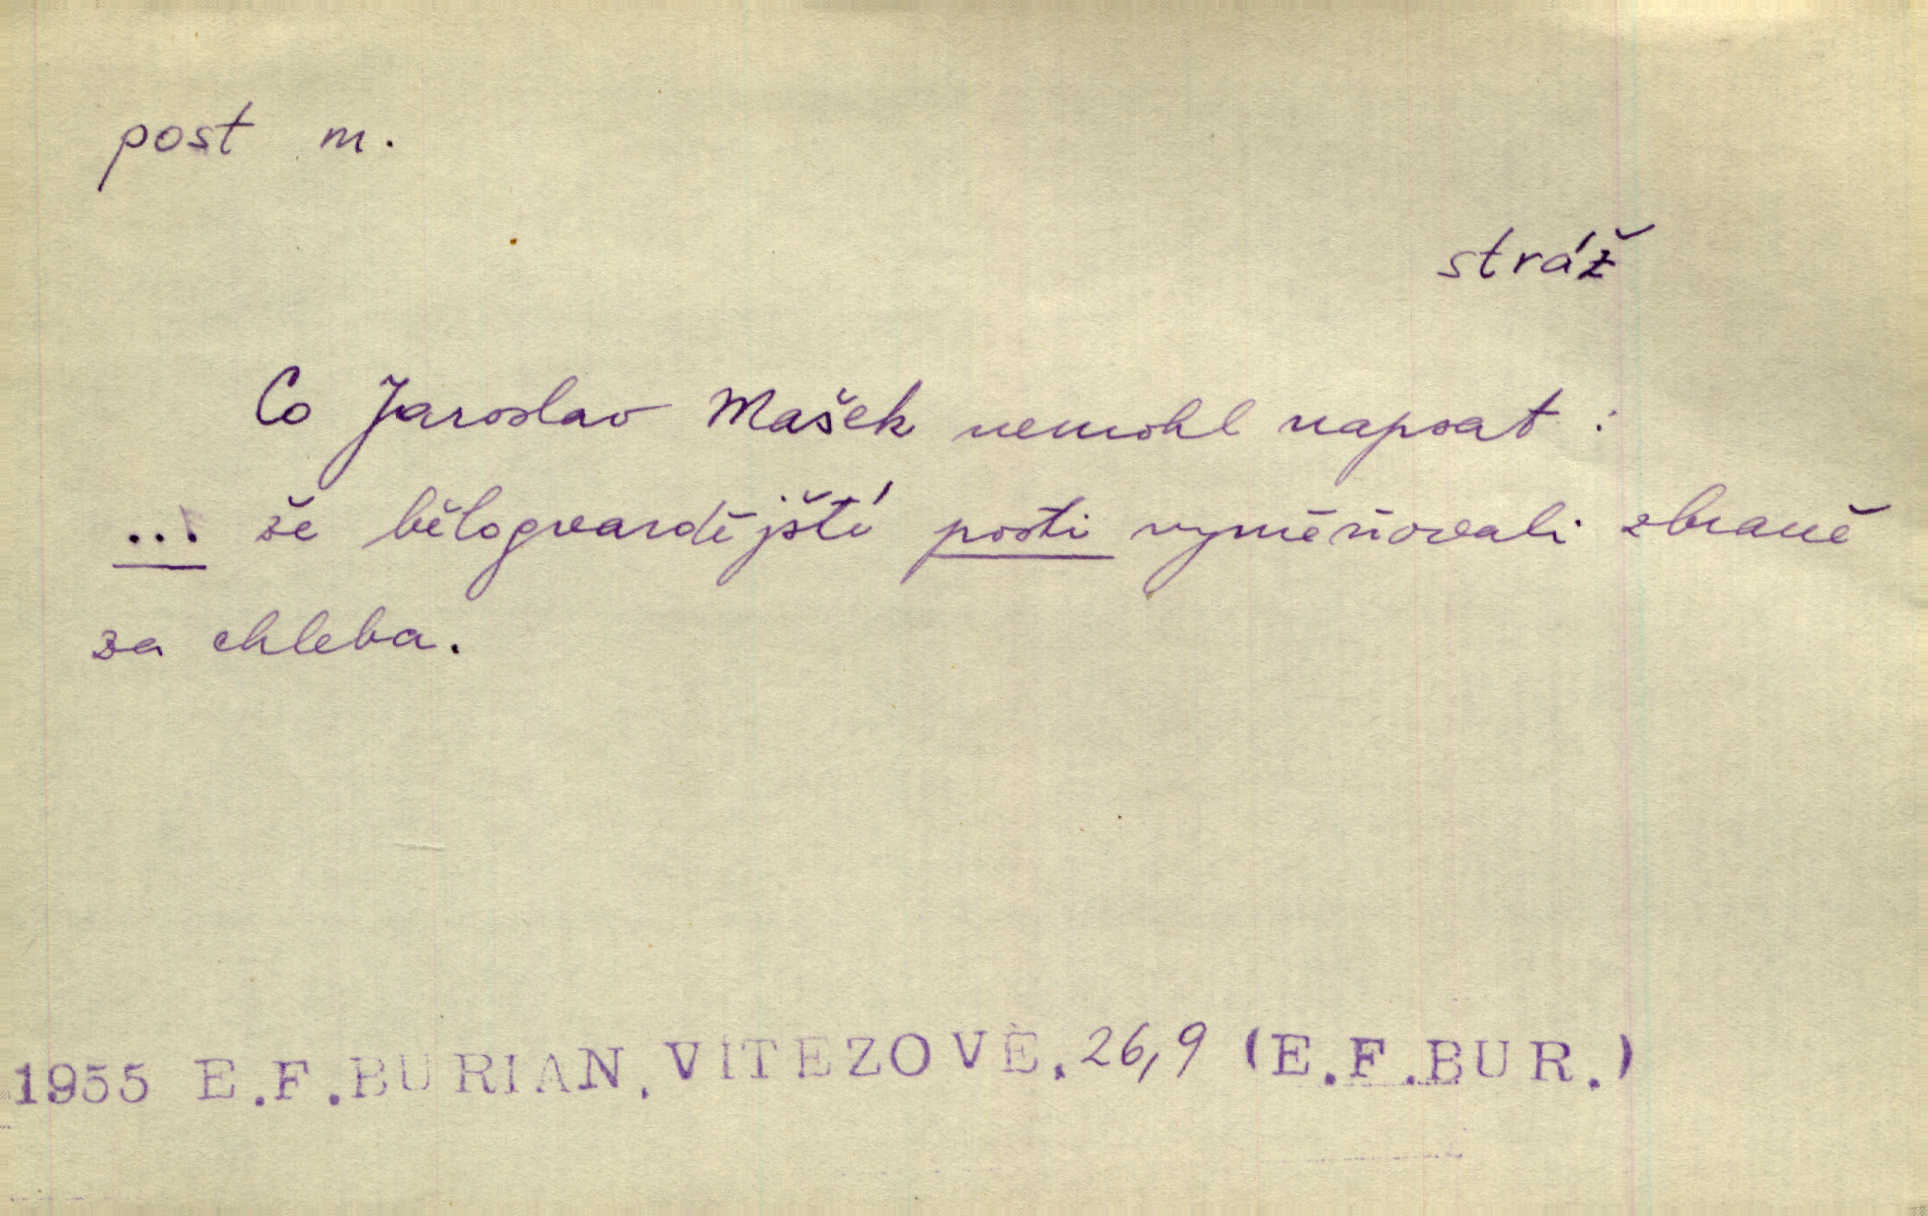 post m.
stráž
Co Jaroslav Mašek nemohl napsat :
... že bělogvardějští posti vyměňovali zbraně
za chleba.
1955 E.F.BURIAN, VÍTEZOVÉ, 26,9 (E.F.BUR.)